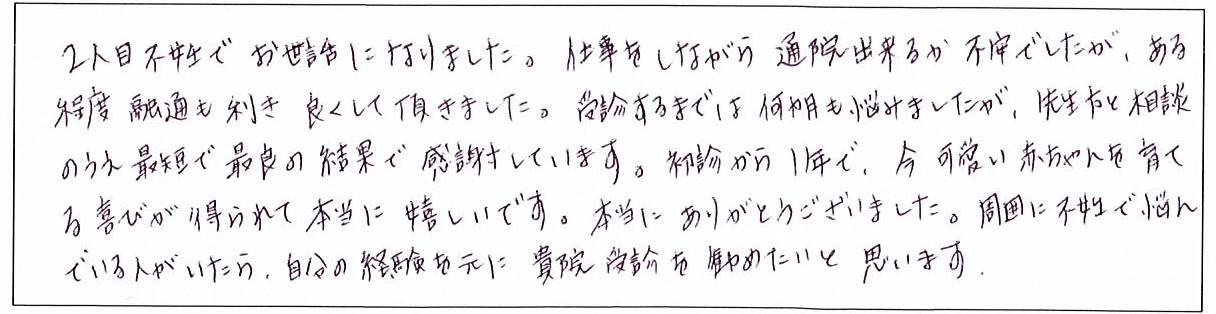 2人目不妊でお世話になりました。仕事をしながら通院出来るか不安でしたが、ある
程度融通も利き良くして頂きました。受診するまでは何ヶ月も悩みましたが、先生方と相談
のうえ最短で最良の結果で感謝しています。初診から1年で、今可愛い赤ちゃんを育て
る喜びが得られて本当に嬉しいです。本当にありがとうございました。周囲に不妊で悩ん
でいる人がいたら、自分の経験を元に貴院受診を勧めたいと思います.